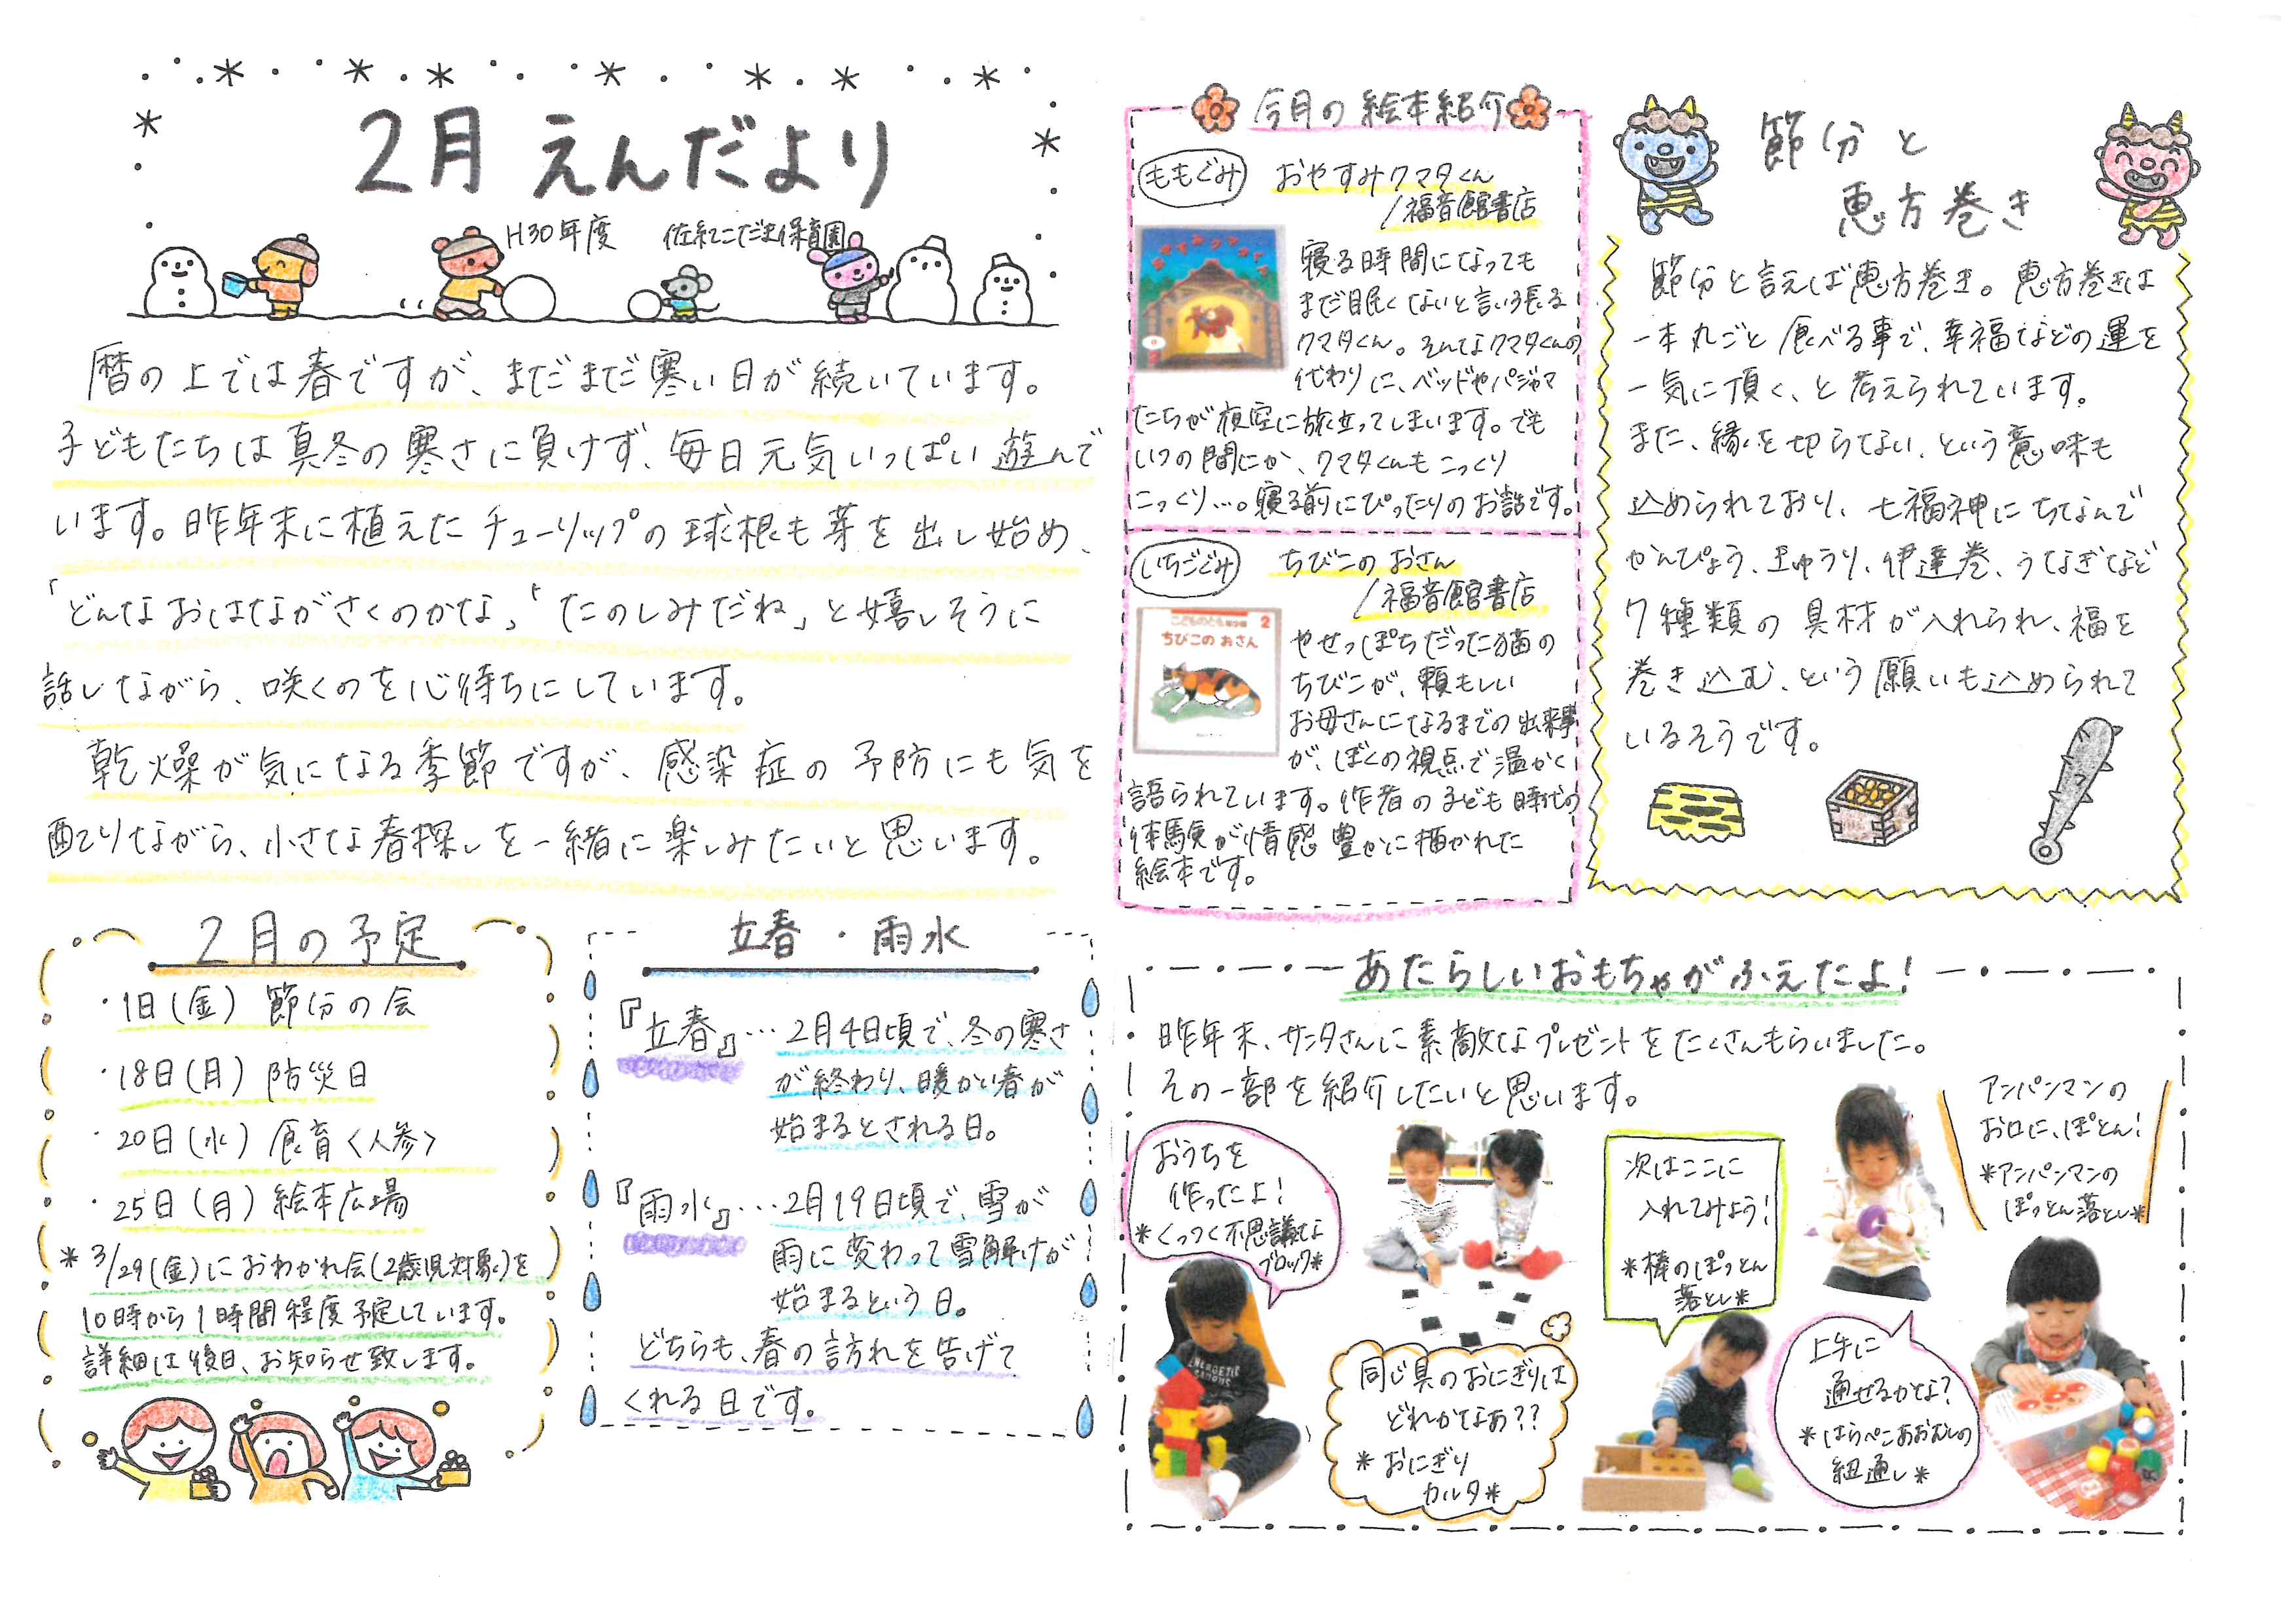 2月 えんだより
H30年度 佐紀こだま保育園
暦の上では春ですが、まだまだ寒い日が続いています。
子どもたちは真冬の寒さに負けず、毎日元気いっぱい遊んで
います。昨年末に植えたチューリップの球根も芽を出し始め、
「どんなおはながさくのかな」「たのしみだね」と嬉しそうに
話しながら、咲くのを心待ちにしています。
乾燥が気になる季節ですが、感染症の予防にも気を
配りながら、小さな春探しを一緒に楽しみたいと思います。
2月の予定
・1日(金) 節分の会
・18日(月) 防災日
・20日(水) 食育〈人参〉
・25日(月) 絵本広場
*3/29(金)におわかれ会(2歳児対象)を
10時から1時間程度予定しています。
詳細は後日、お知らせ致します。
立春・雨水
『立春』…2月4日頃で、冬の寒さ
が終わり、暖かい春が
始まるとされる日。
『雨水』…2月19日頃で、雪が
雨に変わって雪解けが
始まるという日。
どちらも、春の訪れを告げて
くれる日です。
今月の絵本紹介
ももぐみ おやすみクマタくん
/福音館書店
寝る時間になっても
まだ眠くないと言い張る
クマタくん。そんなクマタくんの
代わりに、ベッドやパジャマ
たちが夜空に旅立ってしまいます。でも
いつの間にか、クマタくんもこっくり
こっくり…。寝る前にぴったりのお話です。
いちごぐみ ちびこのおさん
/福音館書店
こどものとも 2
ちびこの おさん
やせっぽちだった猫の
ちびこが、頼もしい
お母さんになるまでの出来事
が、ぼくの視点で温かく
語られています。作者の子ども時代の
体験が情感豊かに描かれた
絵本です。
節分と
恵方巻き
節分と言えば恵方巻き。恵方巻きは
一本丸ごと食べる事で、幸福などの運を
一気に頂く、と考えられています。
また、縁を切らない、という意味も
込められており、七福神にちなんで
かんぴょう、きゅうり、伊達巻、うなぎなど
7種類の具材が入れられ、福を
巻き込む、という願いも込められて
いるそうです。
あたらしいおもちゃがふえたよ!
昨年末、サンタさんに素敵なプレゼントをたくさんもらいました。
その一部を紹介したいと思います。
おうちを
作ったよ!
*くっつく不思議な
ブロック*
同じ具のおにぎりは
どれかなぁ??
*おにぎり
カルタ*
次はここに
入れてみよう!
*棒のぽっとん
落とし*
上手に
通せるかな?
*はらぺこあおむしの
紐通し*
アンパンマンの
お口に、ぽとん!
*アンパンマンの
ぽっとん落とし*